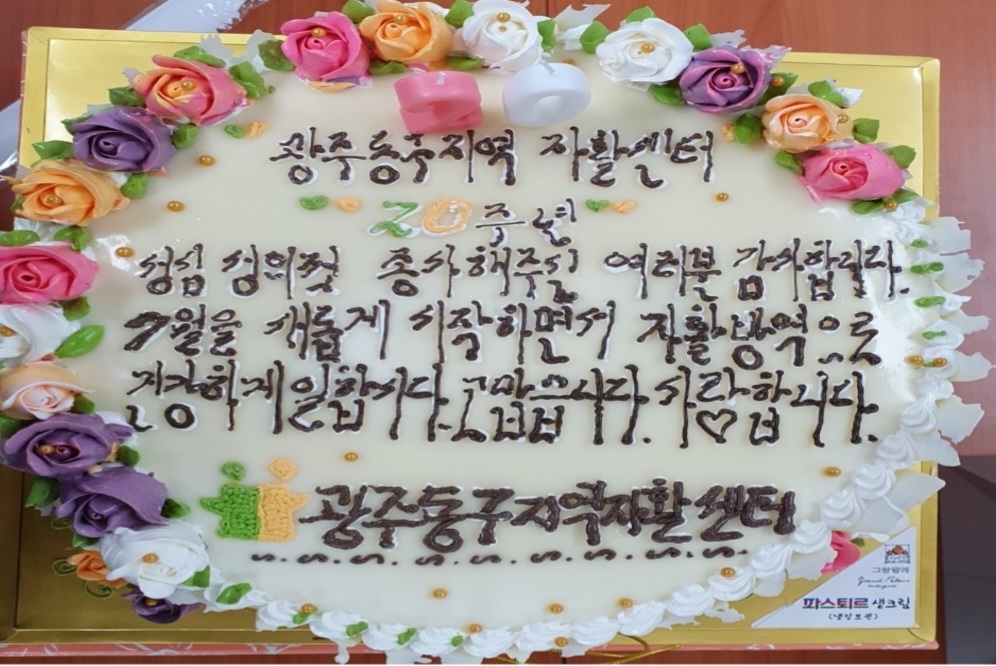 광주동구지역 자활센터
20주년
성심 성의껏 종사해주신 여러분 감사합니다.
7월을 새롭게 시작하면서 자활방역으로
건강하게일합시다. 고맙습니다. 사랑합니다.
광주동구지역자활센터
그랑팔레
Grand Palais
파스퇴르 생크림
(냉장보관)